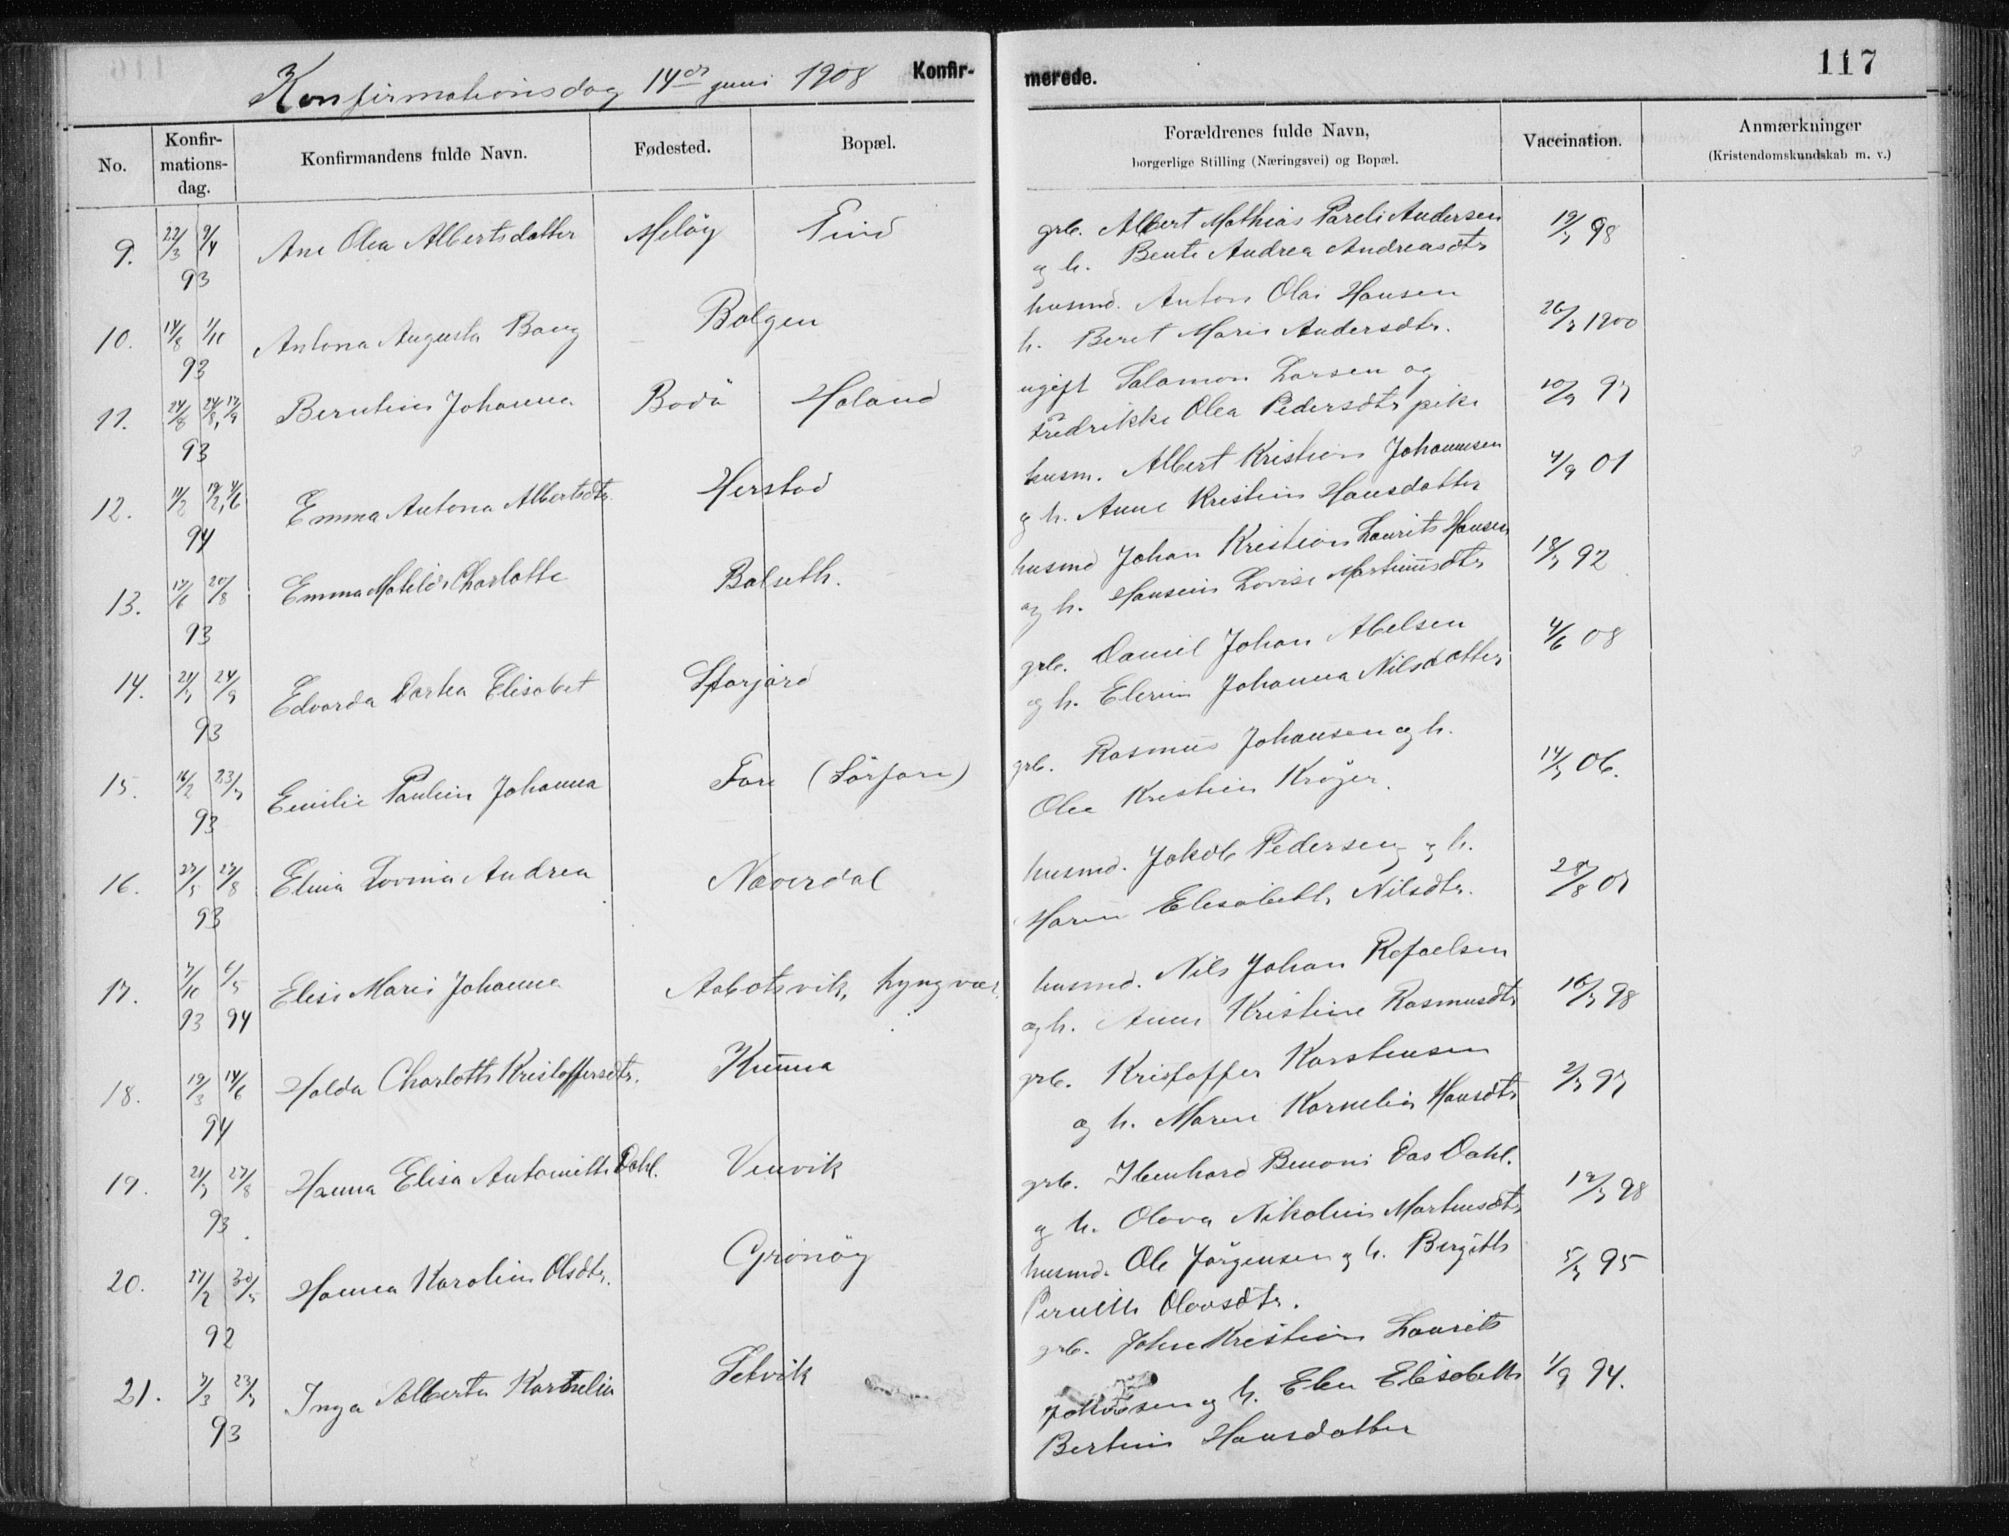 Konfirmationsdag 14de juni 1908
Konfir-
merede.
117
No.
Konfir-
mations-
dag.
Konfirmandens fulde Navn.
Fødested.
Bopæl.
Forældrenes fulde Navn,
borgerlige Stilling (Næringsvei) og Bopæl.
Vaccination.
Anmærkninger
(Kristendomskundskab m. v.)
9. 22/3 9/4 93 Ane Olea Albertsdatter Meløy
grb. Albert Mathias Pareli Andersen
og h. Bente Andrea Andreasdtr
10. 14/8 1/10 93 Antona Augusta Bang Bolgen
husmd. Anton Olai Hansen
h. Beret Marie Andersdtr. 26/7 1900
11. 24/8 93 Berntine Johanna Bodö Haland
ugift Salamon Larsen og
Fredrikke Olea Pedersdtr pike 10/7 97
12. 94 Emma Antona Albertsdtr. Herstad
husm. Albert Kristian Johannesen
og h. Anne Kristine Hansdatter 4/9 01
13. 17/6 20/8 93 Emma Matilde Charlotte Balseth.
husmd Johan Kristian Laurits Hansen
og h. Hansine Lovise Martinusdtr 92
14. 24/7 24/9 93 Edvarda Dorthea Elisabet Storjord
grb. Daniel Johan Abelsen
og h. Elerine Johanna Nilsdatter 4/6 08
15. 16/2 23/7 93 Emilie Pauline Johanna Fore (Sörfore)
grb. Rasmus Johansen og h.
Olea Kristine Krøyer. 14/7 06.
16. 27/5 27/8 93 Elina Lovina Andrea Næverdal
husmd. Jakob Pedersen og h.
Maren Elisabeth Nilsdtr. 28/8 07
17. 7/10 93 6/5 94 Elise Marie Johanna Aabotsvik, Lyngvær
husmd. Nils Johan Rafaelsen
og h. Anna Kristine Rasmusdtr 98
18. 19/3 14/6 94 Halda Charlotte Kristoffersdtr. Kunna
grb. Kristoffer Karstensen
og h. Maren Kornelia Hansdtr 2/7 97
19. 24/7 27/8 93. Hanna Elisa Antonette Dahl. Venvik
grb. Benoni Das Dahl.
og h. Olava Nikoline Martinusdtr 12/7 98
20. 30/5 92 Hanna Karoline Olsdtr. Grønøy
husmd. Ole Jørgensen og h. Birgitte
Pernille Olavsdtr. 5/7 95
21. 7/3 23/7 93 Inga Alberta Kornelia Selvik
grb. Johan Kristian Laurits
Jakobsen og h. Elen Elisabeth 1/9 94.
Bertine Hansdatter